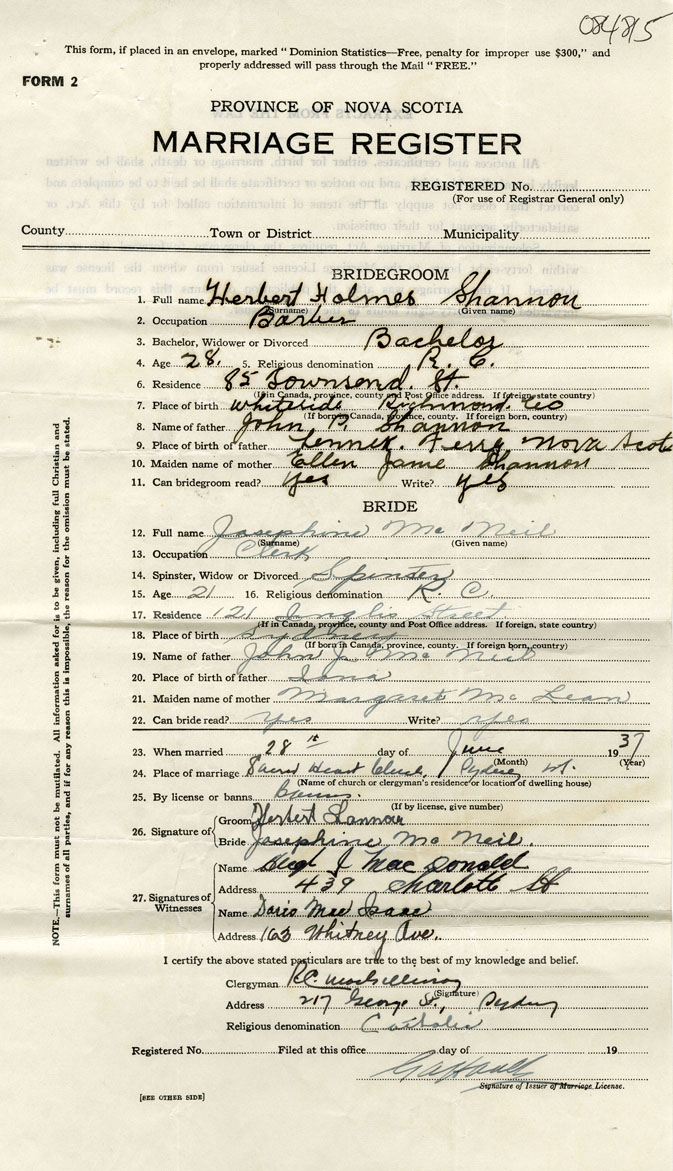 084815
This form, if placed in an envelope, marked "Dominion Statistics—Free, penalty for improper use $300," and
properly addressed will pass through the Mail "FREE."
FORM 2
PROVINCE OF NOVA SCOTIA
MARRIAGE REGISTER
REGISTERED No.
(For use of Registrar General only)
County Town or District Municipality
BRIDEGROOM
1. Full name Herbert Holmes Shannon
(Surname) (Given name)
2. Occupation Barber
3. Bachelor, Widower or Divorced Bachelor
4. Age 28. 5. Religious denomination R. C.
6. Residence 85 Townsend. St.
(If in Canada, province, county and Post Office address. If foreign, state country)
7. Place of birth Whiteside Richmond. Co
(If born in Canada, province, county. If foreign born, country)
8. Name of father John P. Shannon
9. Place of birth of father Lennix. Ferry Nova Scot
10. Maiden name of mother Ellen Jane Shannon
11. Can bridegroom read? Yes Write? yes
BRIDE
12. Full name Josephine Mc Neil
(Surname) (Given name)
13. Occupation Clerk
14. Spinster, Widow or Divorced Spinster
15. Age 21 16. Religious denomination R. C.
17. Residence 121 Inglis Street
(If in Canada, province, county and Post Office address. If foreign, state country)
18. Place of birth Sydney
(If born in Canada, province, county. If foreign born, country)
19. Name of father John J. Mc Neil
20. Place of birth of father Iona
21. Maiden name of mother Margaret Mc Lean
22. Can bride read? yes Write? yes
23. When married 28 th day of June 1937
(Month) (Year)
24. Place of marriage Sacred Heart Church, Sydney
(Name of church or clergyman's residence or location of dwelling house)
25. By license or banns Banns.
(If by license, give number)
26. Signature of Groom Herbert Shannon
Bride Josephine Mc Neil.
27. Signatures of Witnesses
Name Hugh J Mac Donald
Address 439 Charlotte St
Name Doris Mac Isaac
Address 163 Whitney Ave.
I certify the above stated particulars are true to the best of my knowledge and belief.
Clergyman R.C.
(Signature)
Address 217 George St., Sydney
Religious denomination Catholic
Registered No. Filed at this office day of 19
Signature of Issuer of Marriage License.
[SEE OTHER SIDE]
NOTE.—This form must not be mutilated. All information asked for is to be given, including full Christian and
surnames of all parties, and if for any reason this is impossible, the reason for the omission must be stated.